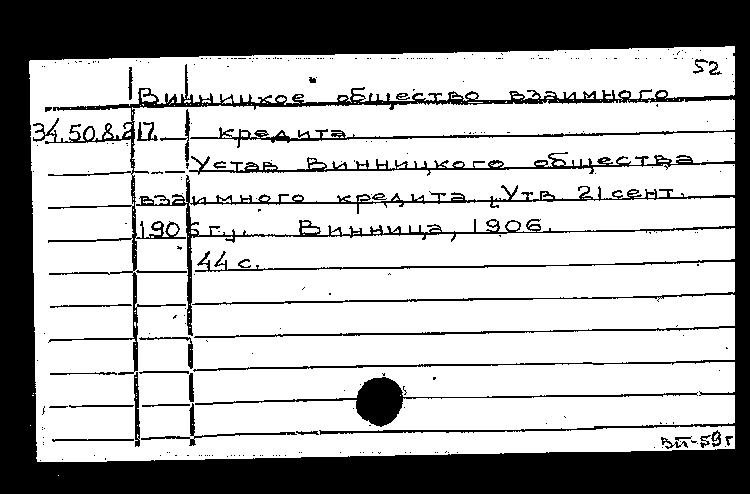 52
Винницкое общество взаимного
34.50.8.217. кредита.
Устав Винницкого общества
взаимного кредита. Утв 21 сент.
1905 г. Винница, 1906.
44 с.
ВП-59г